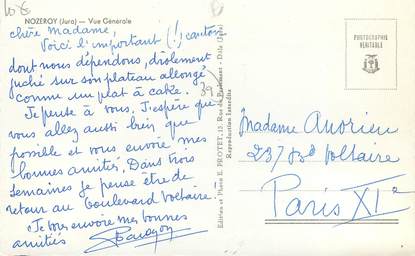 10 €
NOZEROY (Jura) — Vue Générale
chère Madame,
Voici l'important (!) canton
dont nous dépendons, drôlement
juché sur son plateau allongé
comme un plat à cake.
Je pense à vous. J'espère que
vous allez aussi bien que
possible et vous envoie mes
bonnes amitiés. Dans trois
semaines je pense être de
retour au boulevard Voltaire !
Je vous envoie mes bonnes
amitiés
39
Edition et Photo E. PROTET, 13, Rue de - Dôle (Jura)
Reproduction Interdite
PHOTOGRAPHIE
VÉRITABLE
Madame
237 Bd Voltaire
Paris XIe